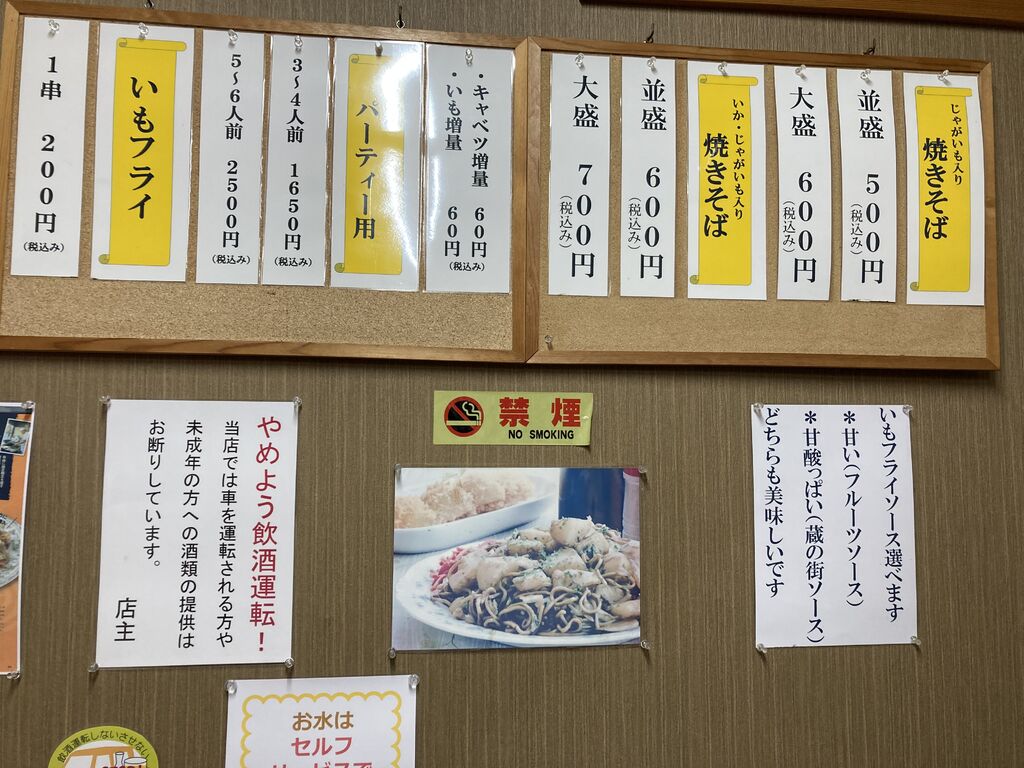 じゃがいも入り
焼きそば
並盛 500円
(税込み)
大盛 600円
(税込み)
いか・じゃがいも入り
焼きそば
並盛 600円
(税込み)
大盛 700円
(税込み)
・キャベツ増量 60円
・いも増量 60円
(税込み)
パーティー用
3~4人前 1650円
(税込み)
5~6人前 2500円
(税込み)
いもフライ
1串 200円
(税込み)
禁煙
NO SMOKING
いもフライソース選べます
*甘い(フルーツソース)
*甘酸っぱい(蔵の街ソース)
どちらも美味しいです
やめよう飲酒運転!
当店では車を運転される方や
未成年の方への酒類の提供は
お断りしています。
店主
お水は
セルフ
サービスで
飲酒運転しないさせない